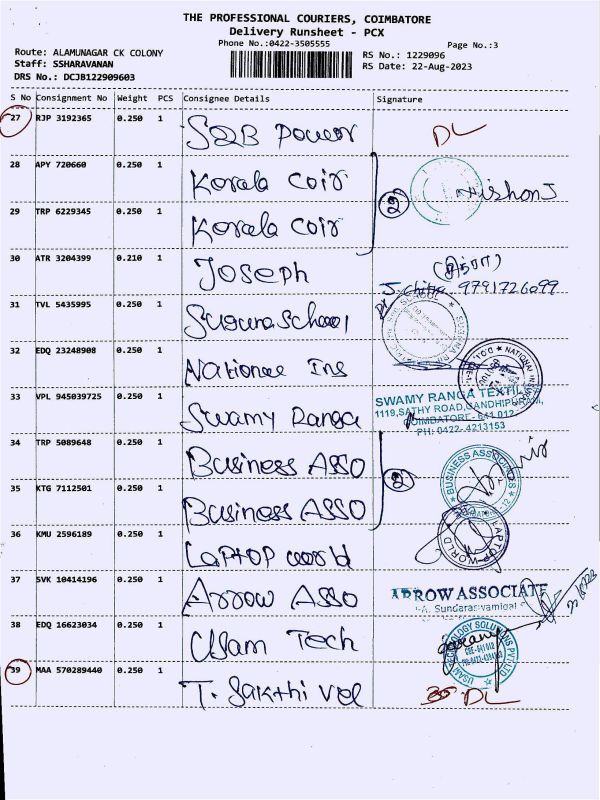 THE PROFESSIONAL COURIERS, COIMBATORE
Delivery Runsheet - PCX
Phone No.:0422-3505555
Page No.:3
Route: ALAMUNAGAR CK COLONY
RS No.: 1229096
Staff: SSHARAVANAN
RS Date: 22-Aug-2023
DRS No.: DCJB122909603
S No Consignment No Weight PCS Consignee Details Signature
27 RJP 3192365 0.250 1 SQB Power DL
28 APY 720660 0.250 1 Korala Coir
29 TRP 6229345 0.250 1 Korala Coir
②
30 ATR 3204399 0.210 1 Joseph
J. Chitra 9791726099
31 TVL 5435995 0.250 1 Suguna School
32 EDQ 23248908 0.250 1 National Ins
33 VPL 945039725 0.250 1 Swamy Ranga
SWAMY RANGA TEXTIL
1119,SATHY ROAD,GANDHIPURAM,
COIMBATORE - 641 012
PH: 0422- 4213153
34 TRP 5089648 0.250 1 Business ASSO
BUSINESS ASSOCIATES
35 KTG 7112501 0.250 1 Business ASSO
②
36 KMU 2596189 0.250 1 Laptop world
LAPTOP WORLD
37 SVK 10414196 0.250 1 Arrow Asso
ARROW ASSOCIATE
38 EDQ 16623034 0.250 1 Usam Tech
USAM TECHNOLOGY SOLUTIONS PVT LTD
CBE-641 012
39 MAA 570289440 0.250 1 T. Sakthi Vel DL